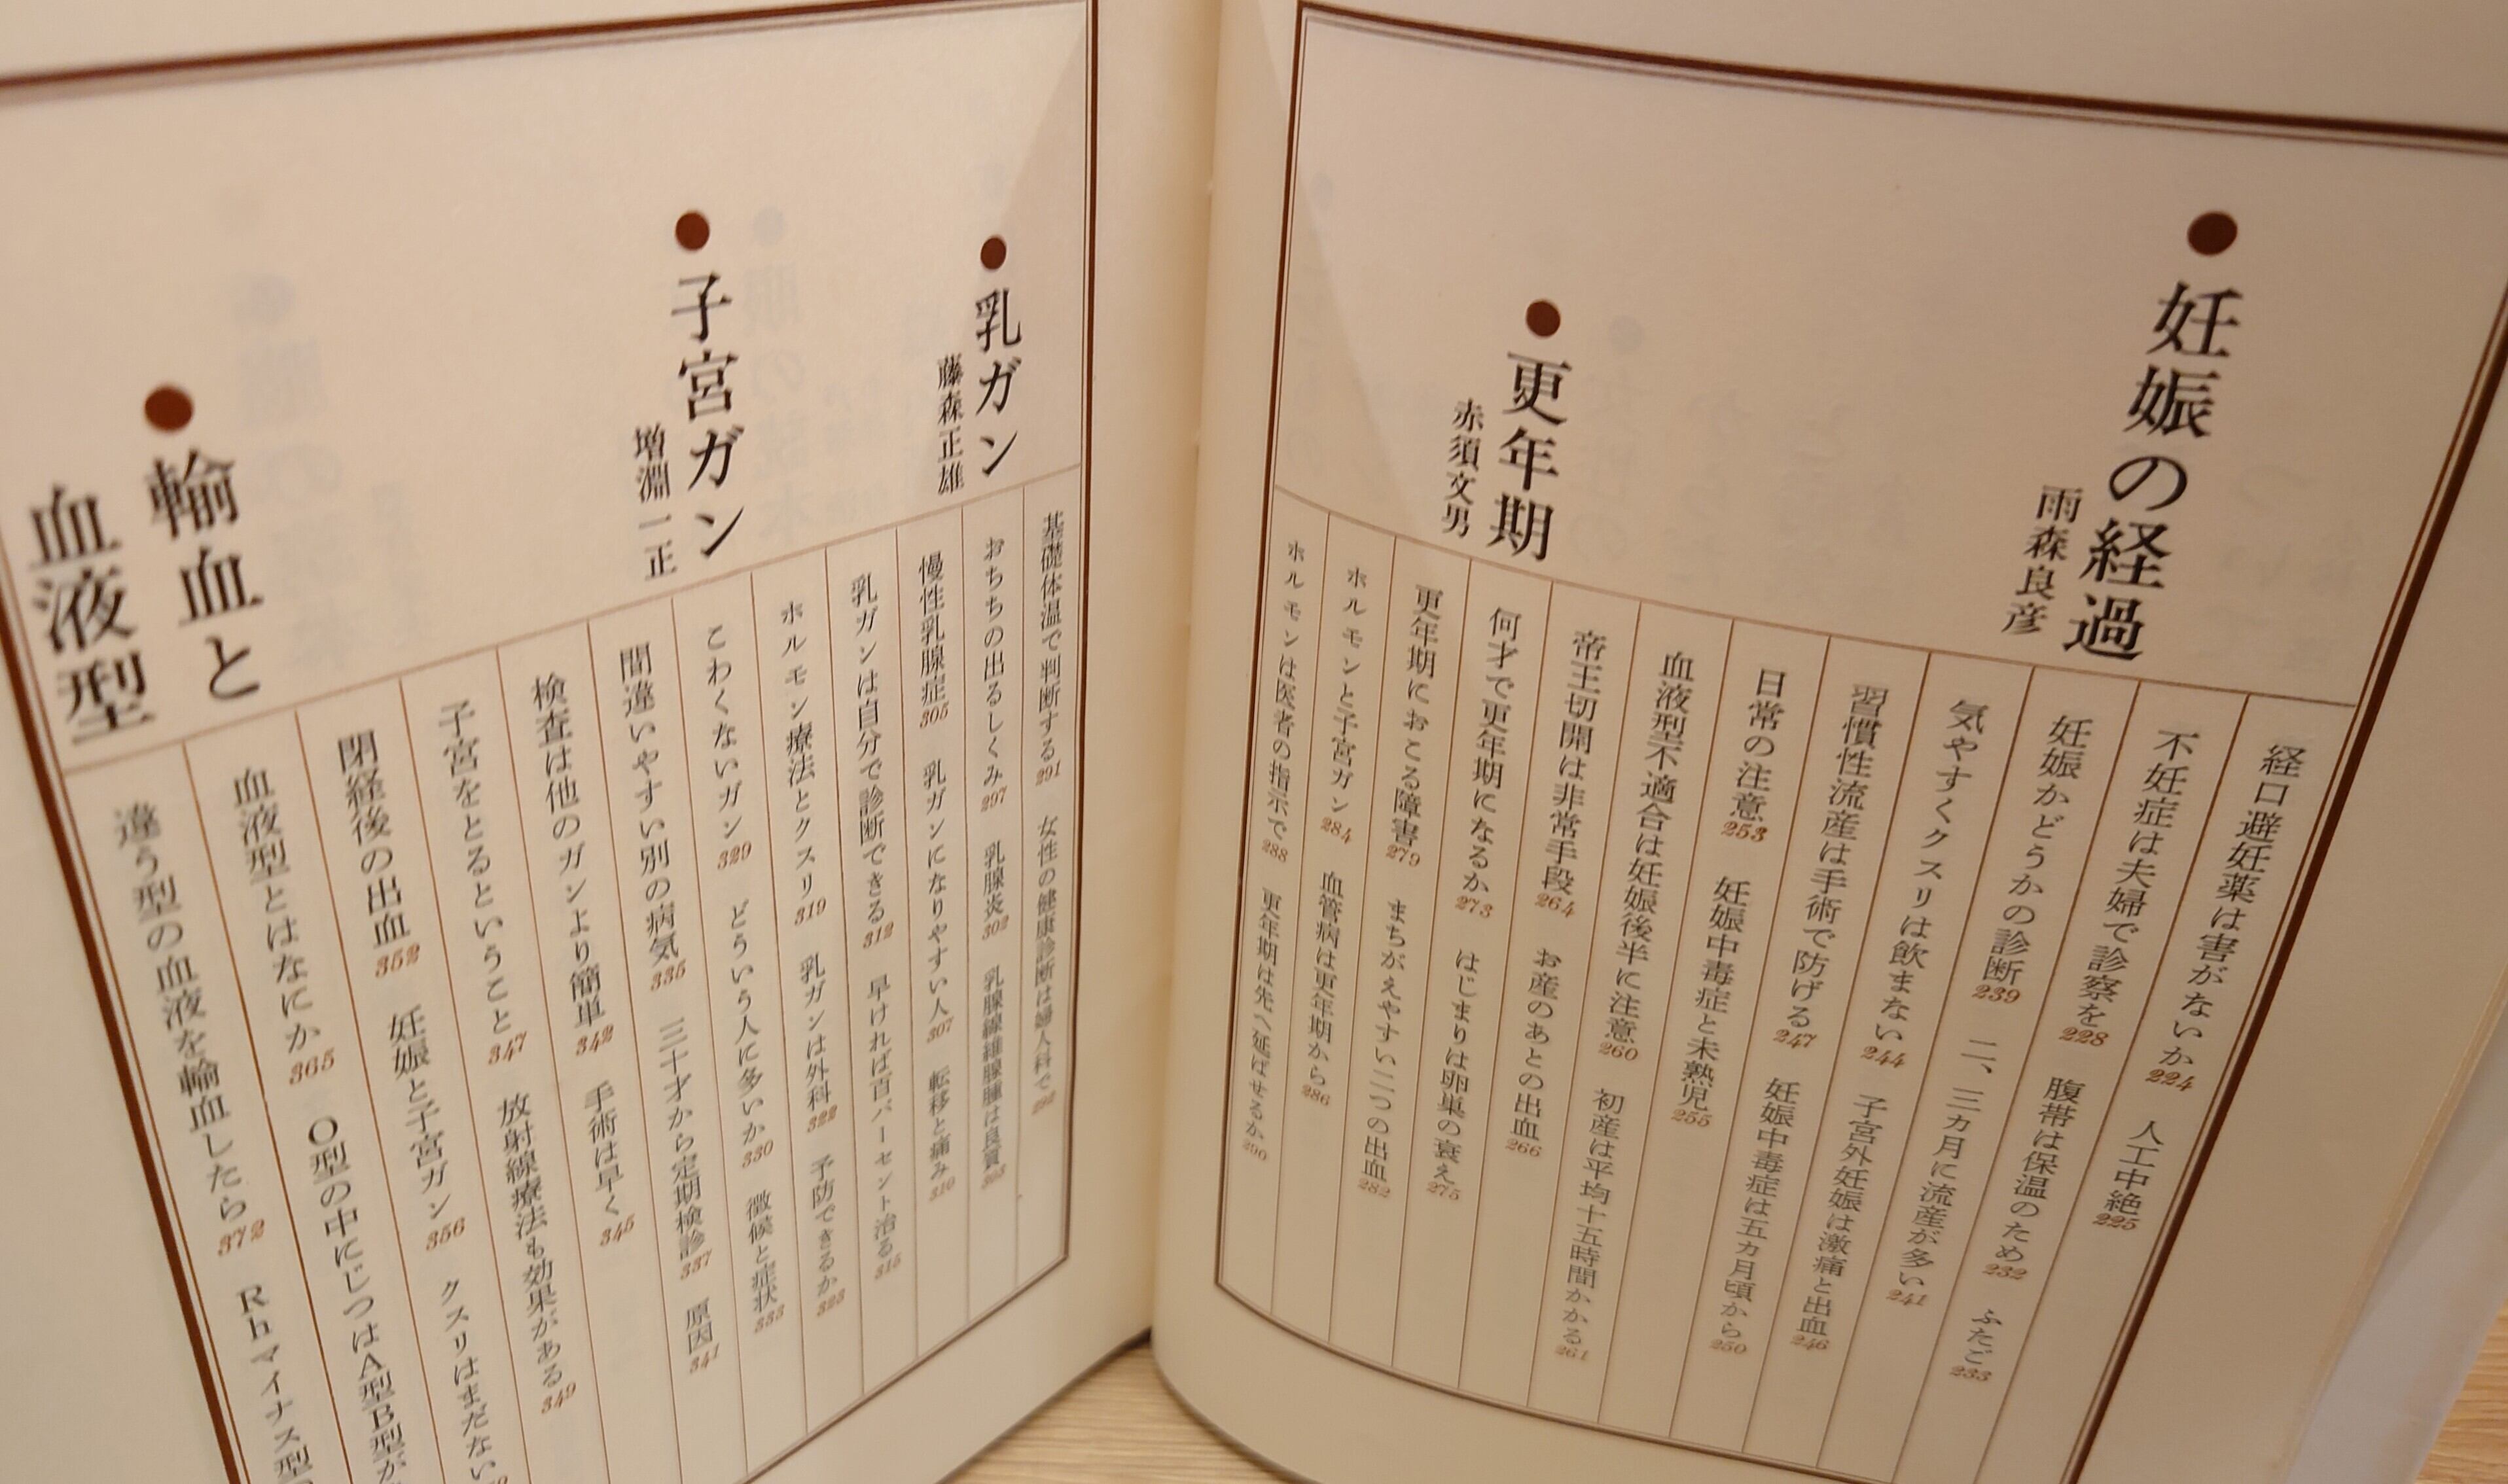 ●妊娠の経過
雨森良彦
経口避妊薬は害がないか224 人工中絶225
不妊症は夫婦で診察を228 腹帯は保温のため232 ふたご233
妊娠かどうかの診断239 二、三カ月に流産が多い241
気やすくクスリは飲まない244 子宮外妊娠は激痛と出血246
習慣性流産は手術で防げる247 妊娠中毒症は五カ月頃から250
日常の注意253 妊娠中毒症と未熟児255
血液型不適合は妊娠後半に注意260 初産は平均十五時間かかる261
帝王切開は非常手段264 お産のあとの出血266
●更年期
赤須文男
何才で更年期になるか273 はじまりは卵巣の衰え275
更年期におこる障害279 まちがえやすい二つの出血282
ホルモンと子宮ガン284 血管病は更年期から286
ホルモンは医者の指示で288 更年期は先へ延ばせるか290
基礎体温で判断する291 女性の健康診断は婦人科で292
●乳ガン
藤森正雄
おちちの出るしくみ297 乳腺炎302 乳腺線維腺腫は良質
慢性乳腺症305 乳ガンになりやすい人307 転移と痛み310
乳ガンは自分で診断できる312 早ければ百パーセント治る315
ホルモン療法とクスリ319 乳ガンは外科322 予防できるか323
●子宮ガン
増淵一正
こわくないガン329 どういう人に多いか330 徴候と症状333
間違いやすい別の病気335 三十才から定期検診337 原因341
検査は他のガンより簡単342 手術は早く345
子宮をとるということ347 放射線療法も効果がある349
閉経後の出血352 妊娠と子宮ガン356 クスリはまだない
●輸血と
血液型
血液型とはなにか365 O型の中にじつはA型B型が
違う型の血液を輸血したら372 Rhマイナス型